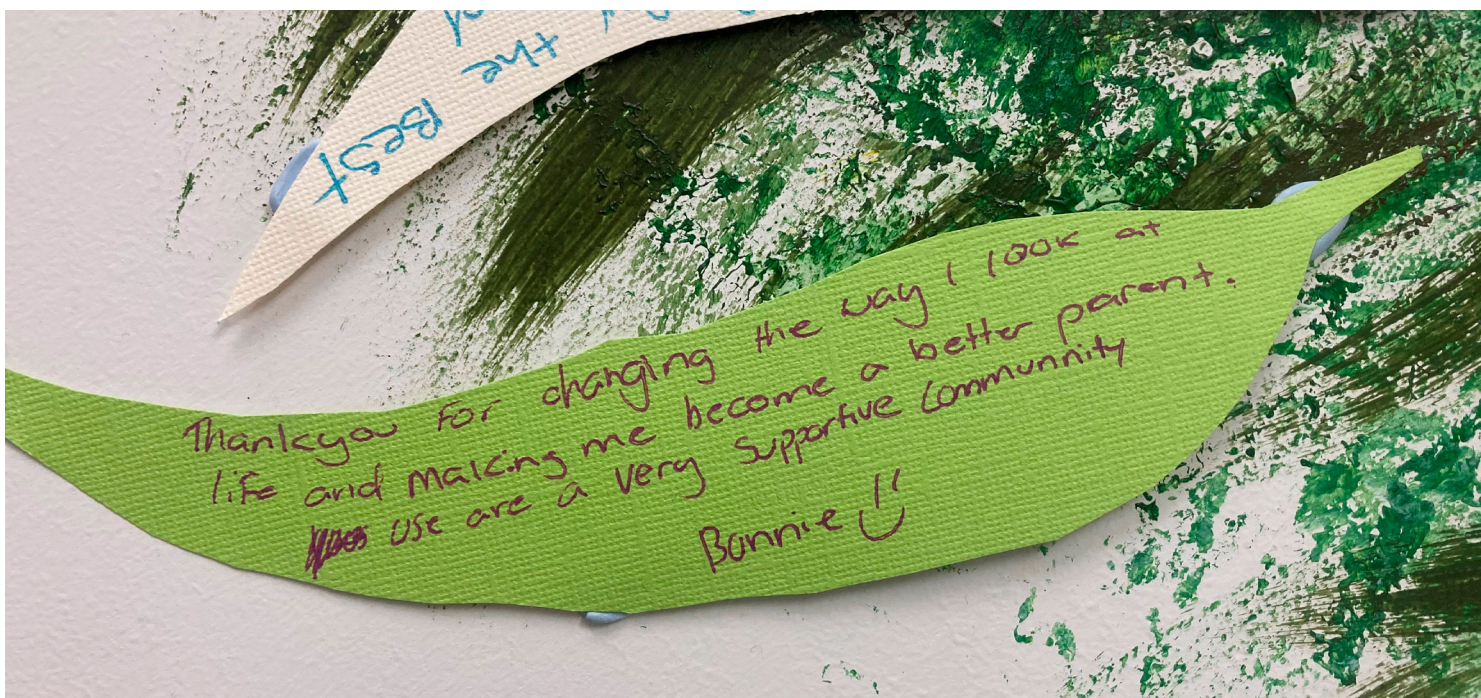 the
Best
Thankyou For changing the way I look at
life and making me become a better parent.
use are a very supportive communnity
Bonnie